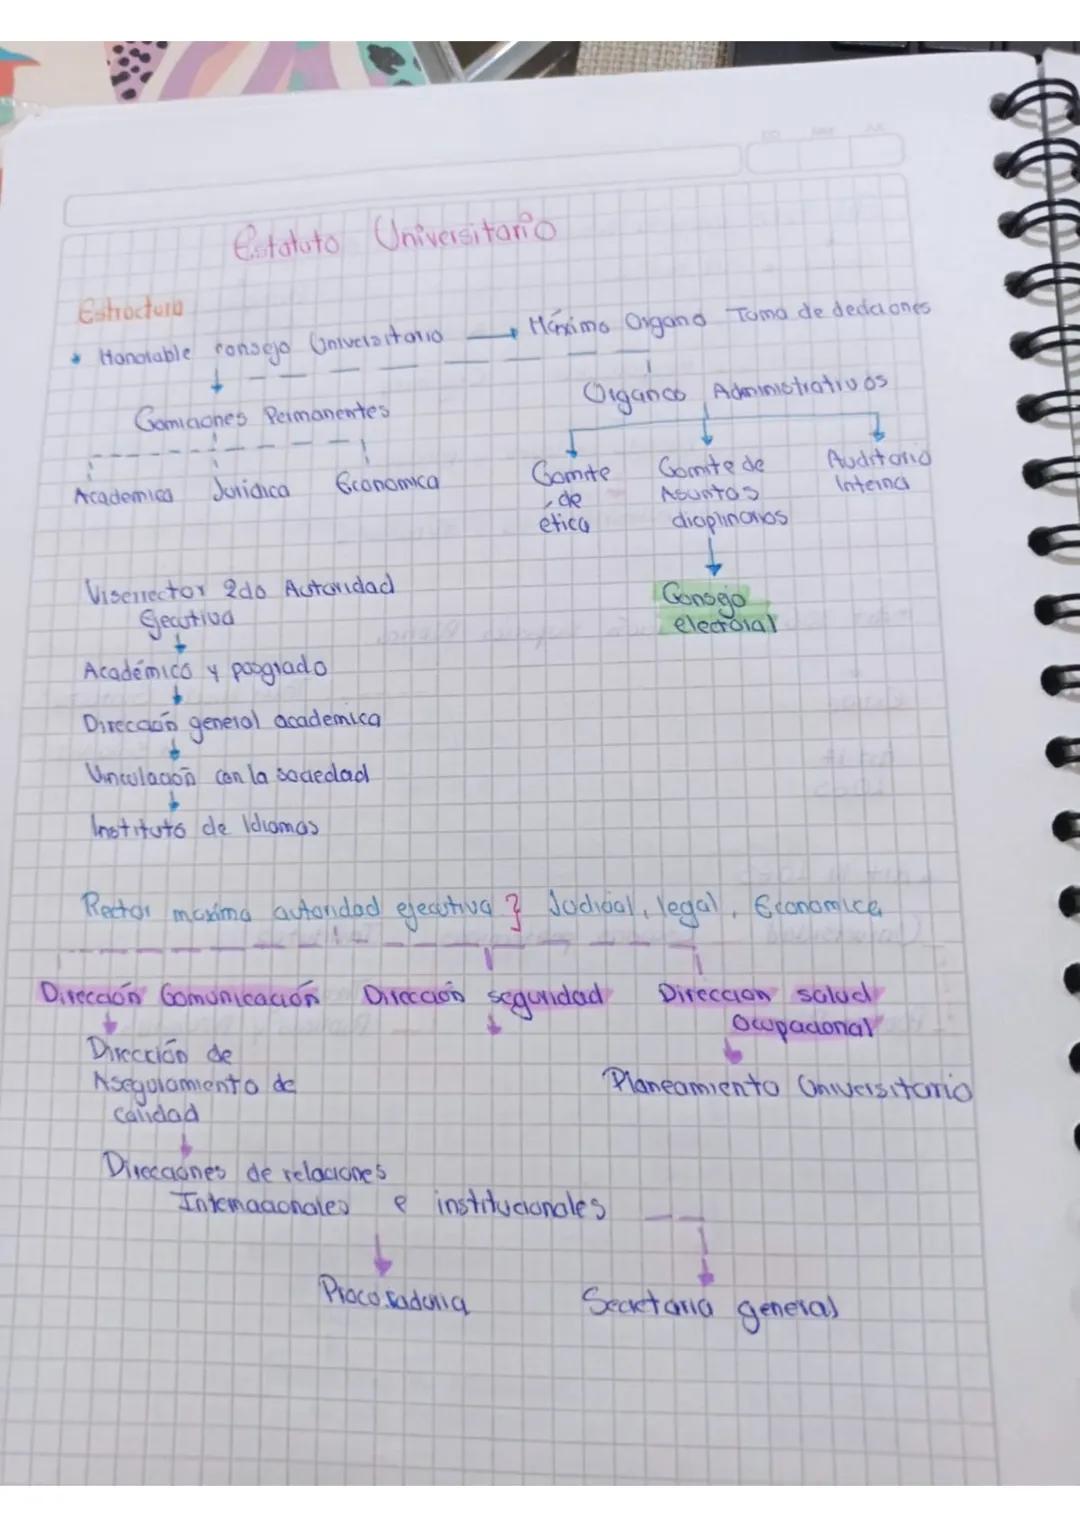 Estatuto Universitario
Estructura
Honorable consejo Universitario → Máximo Organo Toma de deciciones
Comiciones Permanentes
Organos Administrativos
Academica Juridica Economica
Comite de etica
Comite de Asuntos diciplinarios
Auditoria Interna
Consejo electoral
Viserrector 2do Autoridad
Ejecutiva
Académico y posgrado
Dirección general academica
Vinculación con la sociedad
Instituto de Idiomas
Rector maxima autoridad ejecutiva } Judicial, legal, Economica
Dirección Comunicación Dirección seguridad Direccion salud
Ocupacional
Dirección de
Aseguramiento de
calidad
Planeamiento Universitario
Direcciones de relaciones
Internacionales e institucionales
Procuraduria Secretaria general